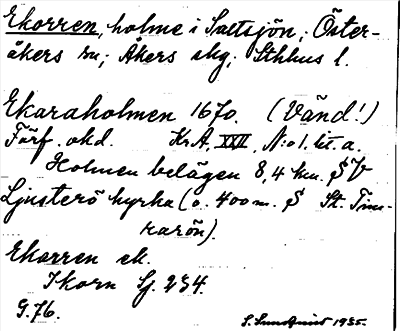 Ekorren, holme i Saltsjön, Öster-
åkers sn; Åkers skg; Sthlms l.
Ekaraholmen 1670. (Vänd!)
Förf. okd. KrA, XXII, N:o 1. lit. a.
Holmen belägen 8,4 km. S V
Ljusterö kyrka (o. 400 m. S St. Tim-
rarön).
Ekorren ek.
Ikorn Sj. 234.
G. 76.
S. Sundquist 1935.